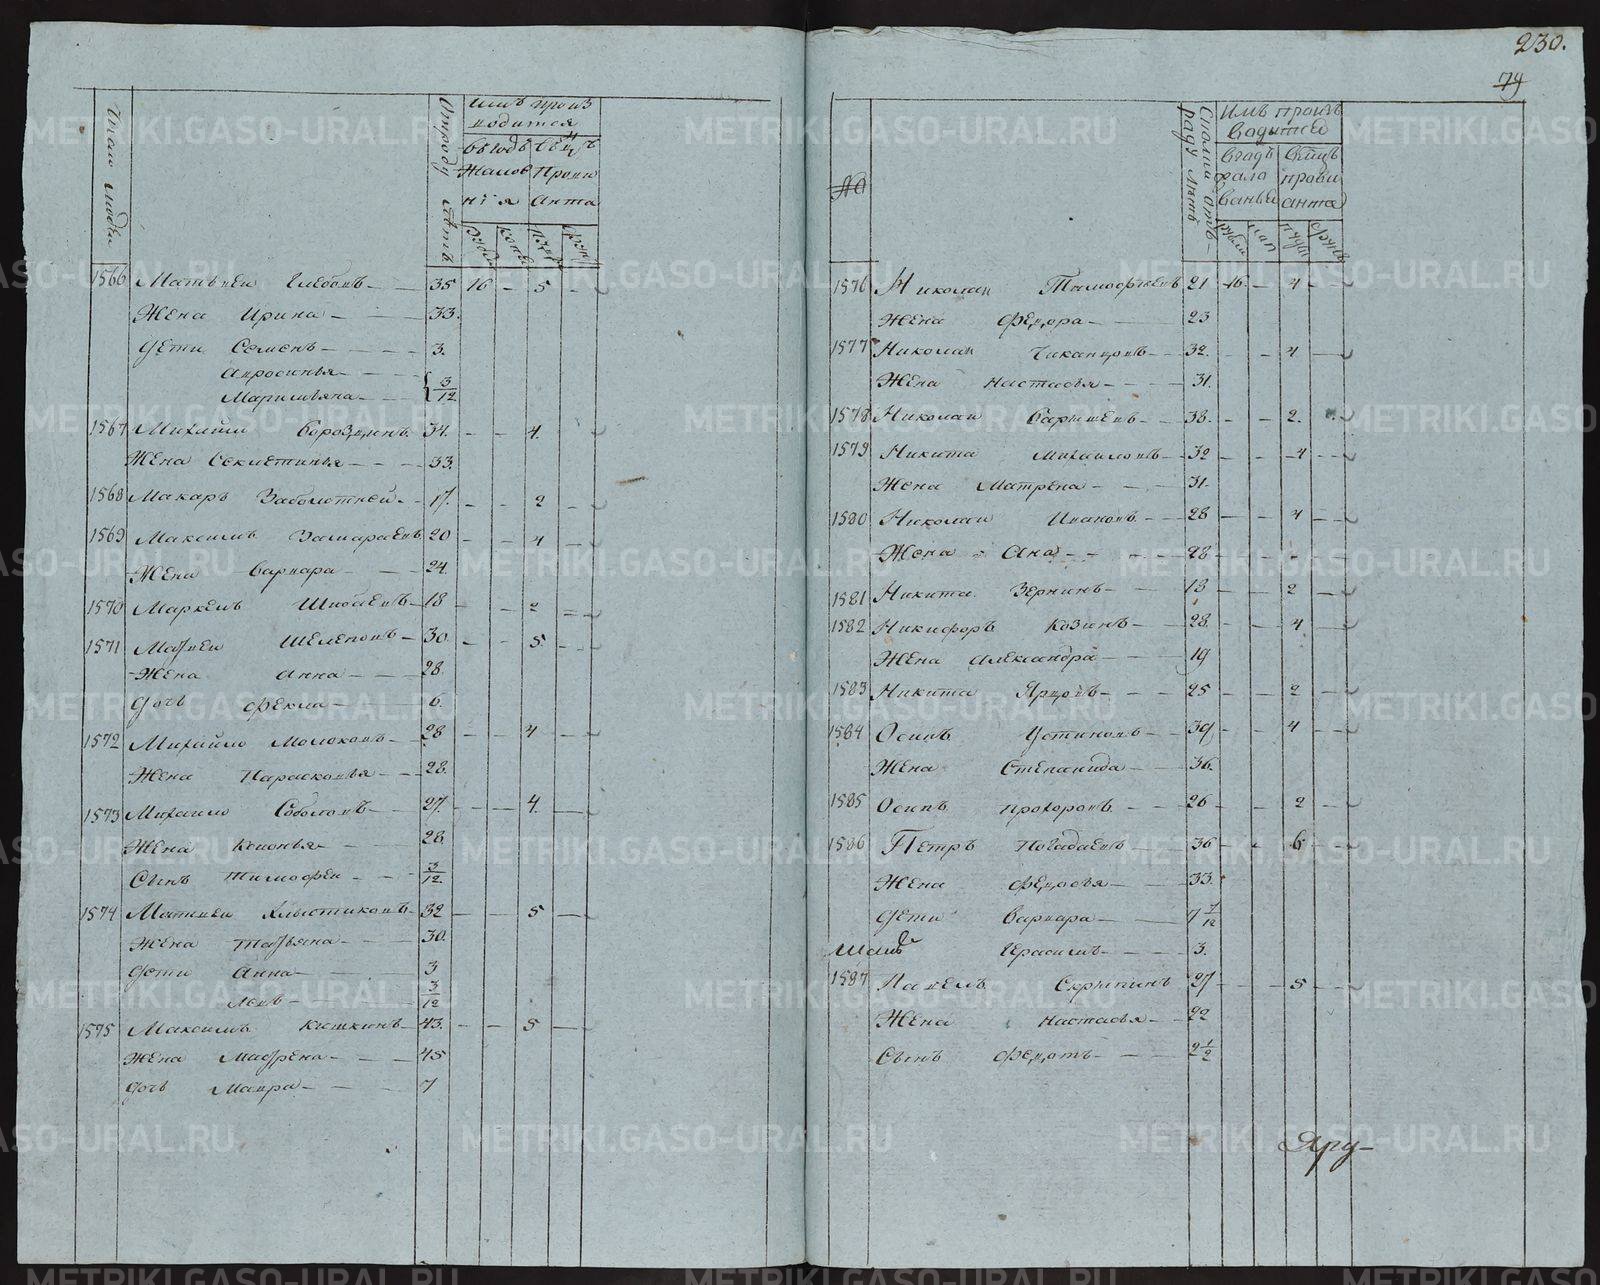 Число людей
Отроду лѣтъ
имъ произ
водится
въ годъ
Жалов
нїя
въ мцъ
Прови
анта
рубл
копѣ
пуды
фун
1566 Матвеи Глебовъ 35 16 - 5
Жена Ирина 33.
Дети Семенъ 3.
Апросинья
Маримьяна 3/12
1567 Михайло Бороздинъ 34. - - 4.
Жена Секлетинья 33.
1568 Макаръ Заболотней 17. - - 2
1569 Максимъ Замараевъ 20 - - 4
Жена Варвара 24.
1570 Маркелъ Шибаевъ 18 - - 2
1571 Матвеи Шелеповъ 30 - - 5
Жена Анна 28.
Дочь Фекла 6.
1572 Михайло Молоковъ 28 - - 4
Жена Парасковья 28.
1573 Михаило Соболовъ 27. - - 4.
Жена Соломья 28
Сынъ Тимофеи 3/12.
1574 Матвеи Хлыстиковъ 32 - - 5
Жена Татьяна 30.
Дети Анна 3
Левъ 3/12
1575 Максимъ Кишкинъ 43. - - 5
Жена Матрена 45
Дочь Мавра 7
230.
79
№
Сколки отъ
раду летъ
Имъ произъ
водитцо
въгадъ
жало
ванья
въмцъ
прови
анта
рубли
коп
пуды
фунъ
1576 Николаи Тимофеевъ 21 16. - 4
Жена Федора 23
1577 Николаи Чиканцовъ 32. - - 4
Жена Настасья 31.
1578 Николаи Барышевъ 38. - - 2.
1579 Никита Михаиловъ 32 - - 4
Жена Матрена 31.
1580 Николаи Ивановъ 28 - - 4
Жена Ана 28.
1581 Никита Зернинъ 18 - - 2
1582 Никифоръ Козинъ 28. - - 4
Жена Александра 19
1583 Никита Ярцовъ 25 - - 2
1584 Осипъ Устиновъ 39 - - 4
Жена Степанида 36.
1585 Осипъ Прохоровъ 26 - - 2
1586 Петръ Погадаевъ 36 - - 6
Жена Федосья 33.
Дети Варвара 7 7/12
Герасимъ 3.
1587 Павелъ Скрыпинъ 27 - - 5
Жена Настасья 22
Сынъ Федотъ 2 1/2